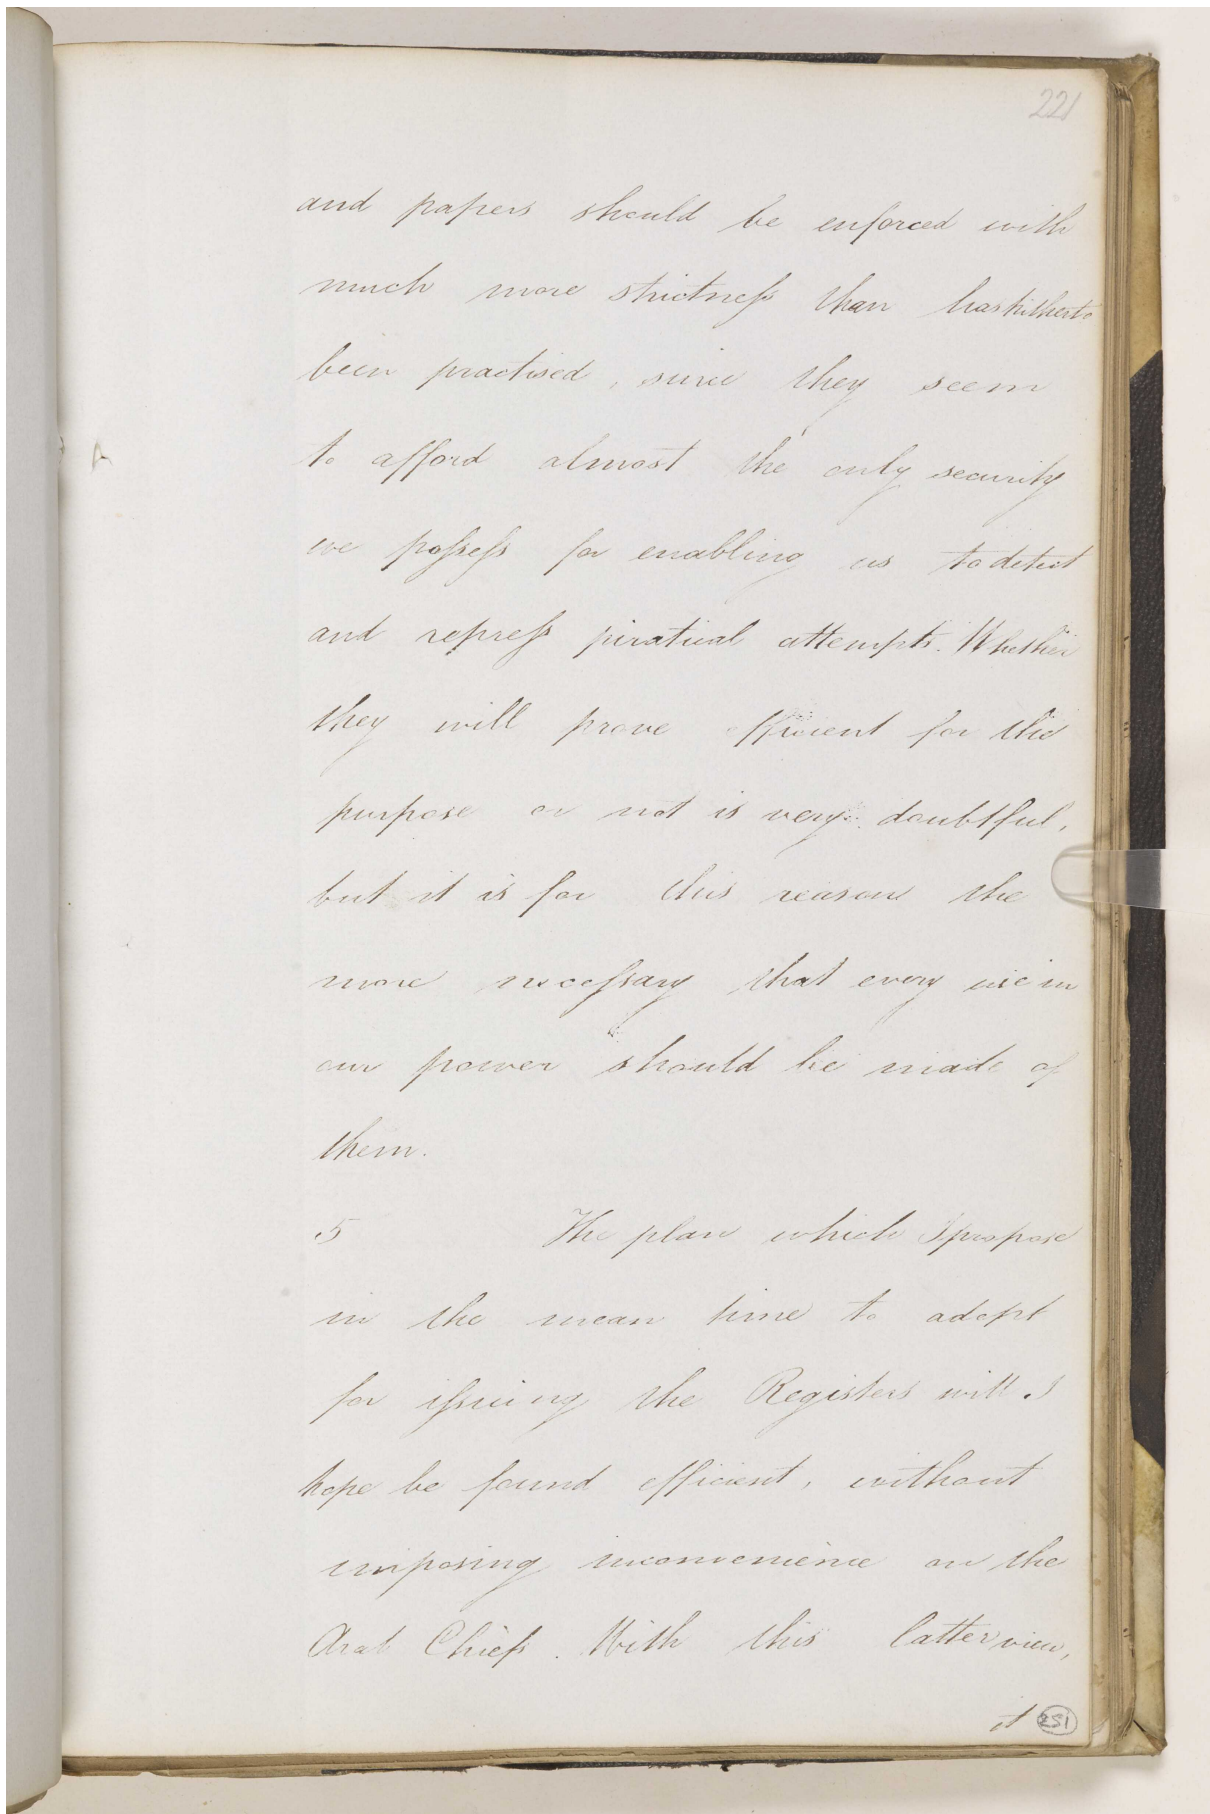 221
and papers should be enforced with
much more strictness than has hitherto
been practised, since they seem
to afford almost the only security
we possess for enabling us to detect
and repress piratical attempts. Whether
they will prove efficient for the
purpose or not is very doubtful,
but it is for this reason the
more necessary that every use in
our power should be made of
them.
5 The plan which I propose
in the mean time to adopt
for issuing the Registers will I
hope be found efficient, without
imposing inconvenience on the
Arab Chiefs. With this latter view,
it
251